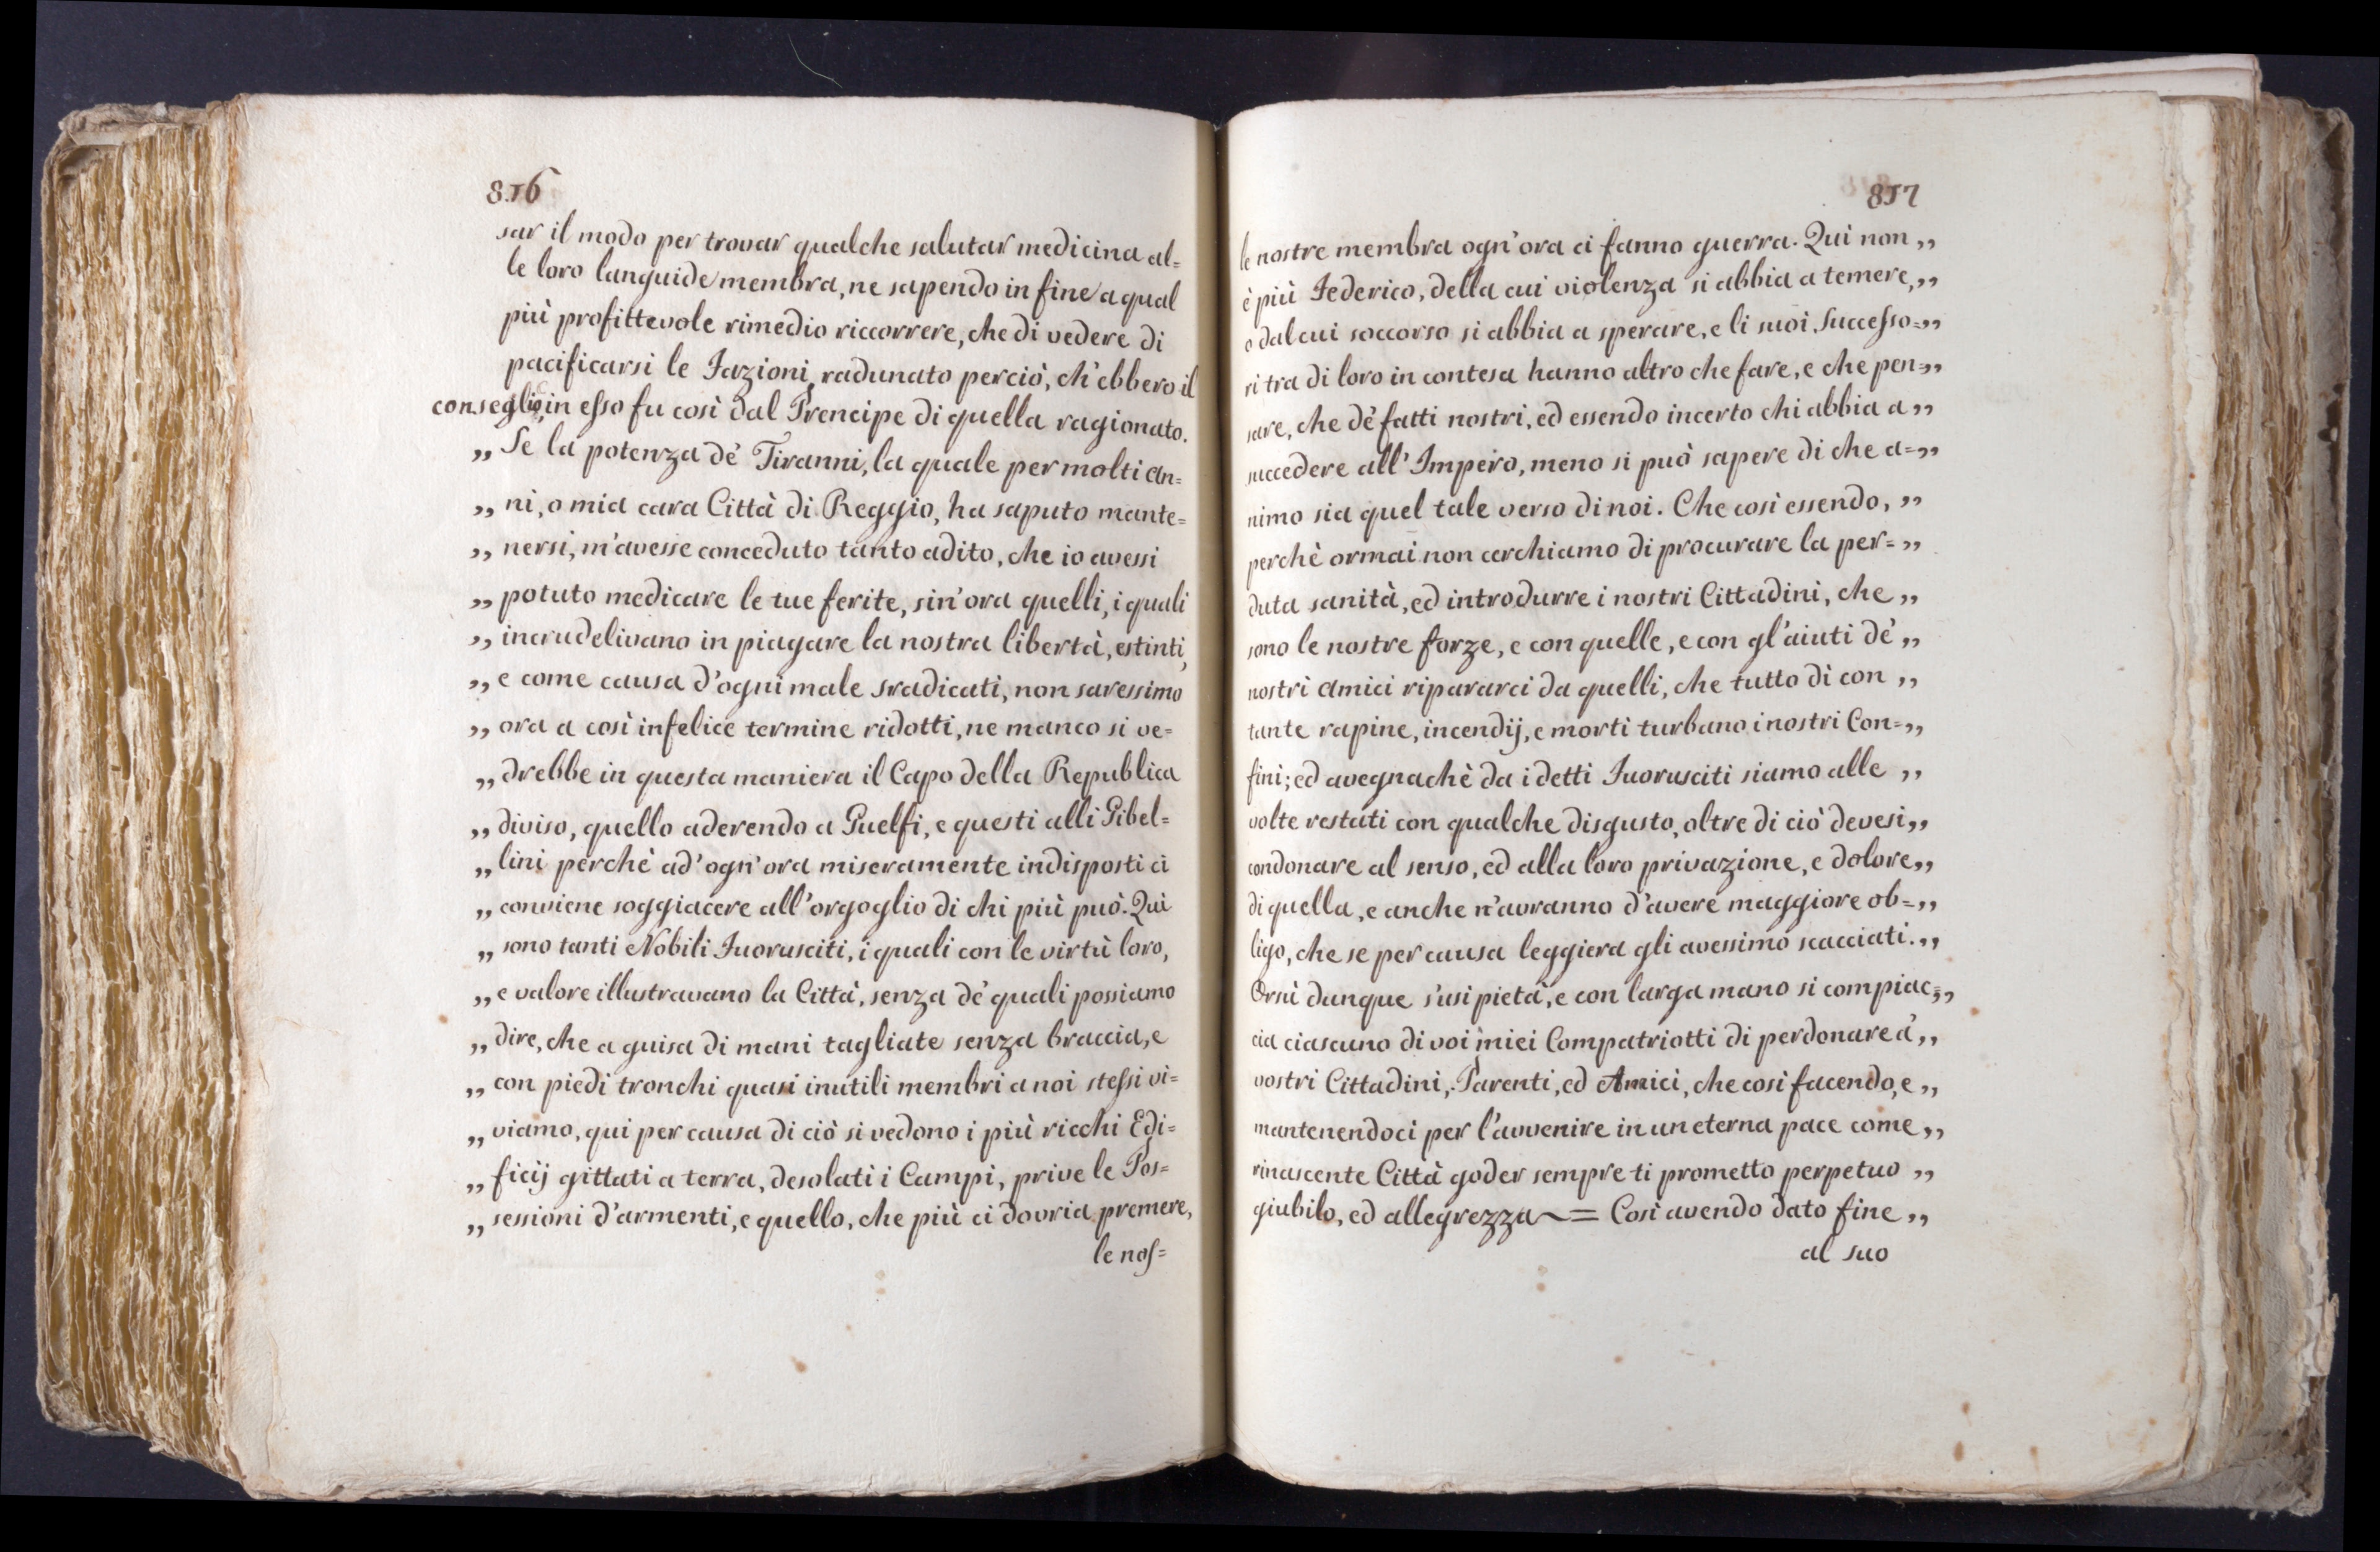 816
sar il modo per trovar qualche salutar medicina al=
le loro languide membra, ne sapendo in fine a qual
più profittevole rimedio riccorrere, che di vedere di
pacificarsi le Fazioni, radunato perciò, ch'ebbero il
conseglio, in esso fu così dal Prencipe di quella ragionato.
„ Se la potenza de' Tiranni, la quale per molti an=
„ ni, o mia cara Città di Reggio, ha saputo mante=
„ nersi, m'avesse conceduto tanto adito, che io avessi
„ potuto medicare le tue ferite, sin'ora quelli, i quali
„ incrudelivano in piagare la nostra libertà, estinti,
„ e come causa d'ogni male sradicati, non saressimo
„ ora a così infelice termine ridotti, ne manco si ve=
„ drebbe in questa maniera il Capo della Republica
„ diviso, quello aderendo a Guelfi, e questi alli Gibel=
„ lini perchè ad'ogn'ora miseramente indisposti ci
„ conviene soggiacere all'orgoglio di chi più può. Qui
„ sono tanti Nobili Fuorusciti, i quali con le virtù loro,
„ e valore illustravano la Città, senza de' quali possiamo
„ dire, che a guisa di mani tagliate senza braccia, e
„ con piedi tronchi quasi inutili membri a noi stessi vi=
„ viamo, qui per causa di ciò si vedono i più ricchi Edi=
„ ficij gittati a terra, desolati i Campi, prive le Pos=
„ sessioni d'armenti, e quello, che più ci dovria premere,
le nos=
817
le nostre membra ogn'ora ci fanno guerra. Qui non „
è più Federico, della cui violenza si abbia a temere, „
o dal cui soccorso si abbia a sperare, e li suoi Successo= „
ri tra di loro in contesa hanno altro che fare, e che pen= „
sare, che de' fatti nostri, ed essendo incerto chi abbia a „
succedere all'Impero, meno si può sapere di che a= „
nimo sia quel tale verso di noi. Che così essendo, „
perchè ormai non cerchiamo di procurare la per= „
duta sanità, ed introdurre i nostri Cittadini, che „
sono le nostre forze, e con quelle, e con gl'aiuti de' „
nostri amici ripararci da quelli, che tutto dì con „
tante rapine, incendij, e morti turbano i nostri Con= „
fini; ed avegnachè da i detti Fuorusciti siamo alle „
volte restati con qualche disgusto, oltre di ciò devesi „
condonare al senso, ed alla loro privazione, e dolore „
di quella, e anche n'avranno d'avere maggiore ob= „
ligo, che se per causa leggiera gli avessimo scacciati. „
Orsù dunque s'usi pietà, e con larga mano si compiac= „
cia ciascuno di voi miei Compatriotti di perdonare a' „
vostri Cittadini, Parenti, ed Amici, che così facendo, e „
mantenendoci per l'avvenire in un eterna pace come „
rinascente Città goder sempre ti prometto perpetuo „
giubilo, ed allegrezza ~ = Così avendo dato fine „
al suo